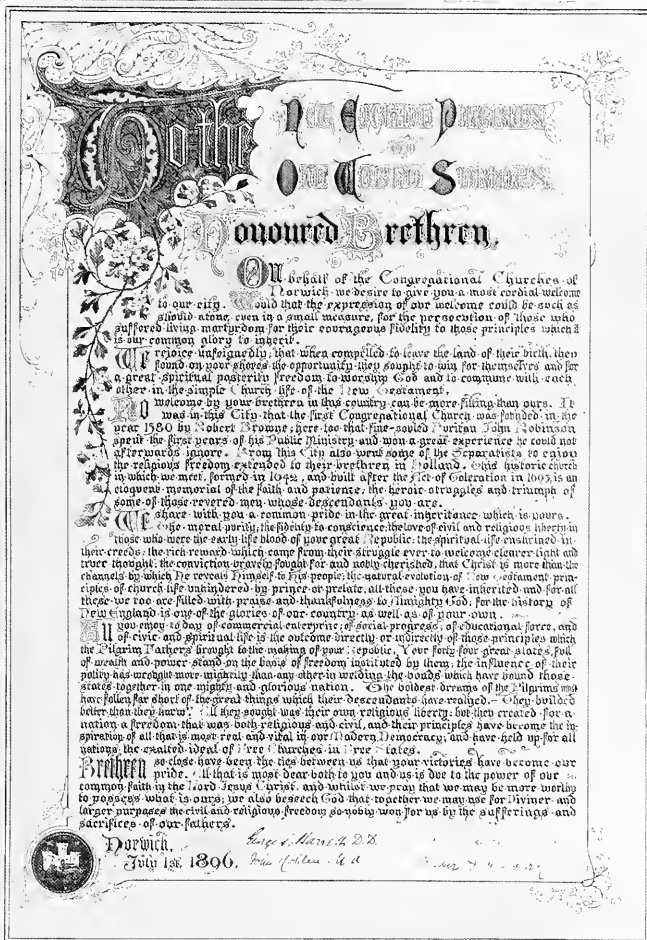 To the
New England Pilgrims
Our Western
Honoured Brethren,
On behalf of the Congregational Churches of
Norwich we desire to give you a most cordial welcome
to our city. Would that the expression of our welcome could be such as
should atone, even in a small measure, for the persecution of those who
suffered living martyrdom for their courageous fidelity to those principles which it
is our common glory to inherit.
We rejoice unfeignedly, that when compelled to leave the land of their birth, they
found on your shores the opportunity they sought to win for themselves and for
a great spiritual posterity freedom to worship God and to commune with each
other in the simple Church life of the New Testament.
No welcome by your brethren in this country can be more fitting than ours. It
was in this City that the first Congregational Church was founded in the
year 1580 by Robert Browne; here too that fine-souled Puritan John Robinson
spent the first years of his Public Ministry and won a great experience he could not
afterwards ignore. From this City also went some of the Separatists to enjoy
the religious freedom extended to their brethren in Holland. This historic church
in which we meet, formed in 1642, and built after the Act of Toleration in 1693, is an
eloquent memorial of the faith and patience, the heroic struggles and triumph of
some of those revered men whose descendants you are.
We share with you a common pride in the great inheritance which is yours.
The moral purity; the fidelity to conscience; the love of civil and religious liberty in
those who were the early life blood of your great Republic; the spiritual life enshrined in
their creeds; the rich reward which came from their struggle ever to welcome clearer light and
truer thought; the conviction bravely fought for and nobly cherished, that Christ is more than the
channels by which He reveals Himself to His people; the natural evolution of New Testament prin-
ciples of church life unhindered by prince or prelate, all these you have inherited and for all
these we too are filled with praise and thankfulness to Almighty God; for the history of
New England is one of the glories of our country as well as of your own.
All you enjoy to day of commercial enterprise, of social progress, of educational force, and
of civic and spiritual life is the outcome directly or indirectly of those principles which
the Pilgrim Fathers brought to the making of your Republic. Your forty four great states, full
of wealth and power stand on the basis of freedom instituted by them; the influence of their
polity has wrought more mightily than any other in welding the bonds which have bound those
states together in one mighty and glorious nation. The boldest dreams of the Pilgrims must
have fallen far short of the great things which their descendants have realised. – They builded
better than they knew. All they sought was their own religious liberty: but they created for a
nation a freedom that was both religious and civil, and their principles have become the in-
spiration of all that is most real and vital in our Modern Democracy, and have held up for all
nations the exalted ideal of Free Churches in Free States.
Brethren so close have been the ties between us that your victories have become our
pride. All that is most dear both to you and us is due to the power of our
common faith in the Lord Jesus Christ, and whilst we pray that we may be more worthy
to possess what is ours; we also beseech God that together we may use for Diviner and
larger purposes the civil and religious freedom so nobly won for us by the sufferings and
sacrifices of our fathers.
Norwich,
July 1st, 1896.
George S. Barrett D.D.